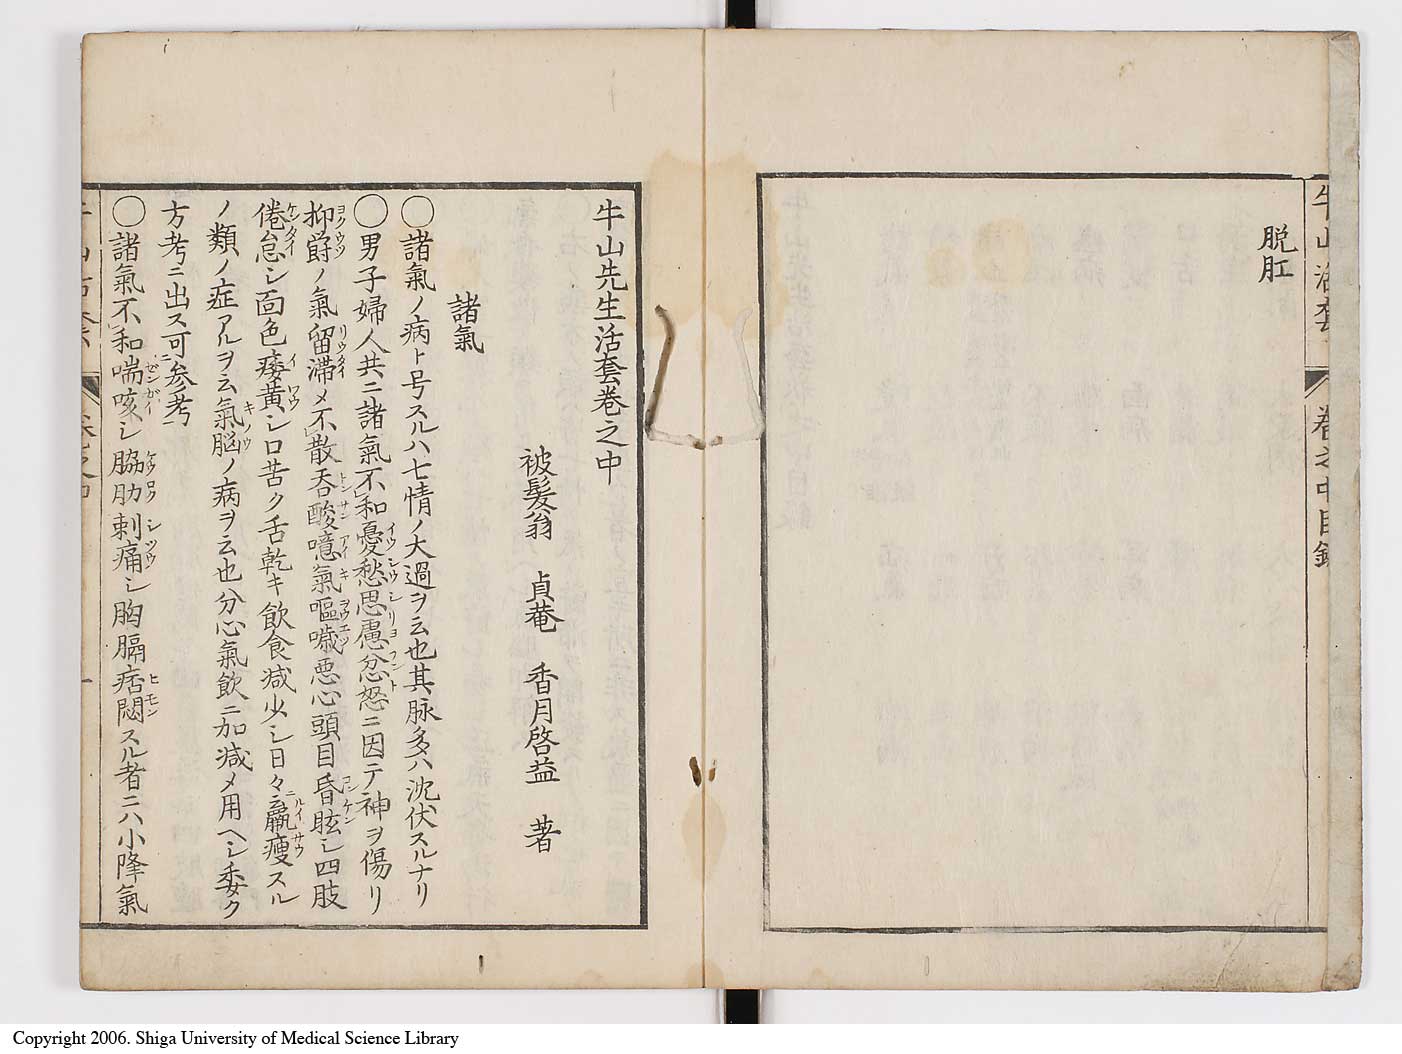 脱肛
牛山活套
卷之中目錄
牛山先生活套卷之中
被髮翁　貞菴　香月啓益　著
諸氣
〇諸氣ノ病ト号スルハ七情ノ大過ヲ云也其脉多ハ沈伏スルナリ
〇男子婦人共ニ諸氣不和憂愁思慮忿怒ニ因テ神ヲ傷リ
抑欝ノ氣留滯メ不散吞酸噫氣嘔噦悪心頭目昏眩シ四肢
倦怠シ面色痿黄シ口苦ク舌乾キ飲食减少シ日々ニ羸瘦スル
ノ類ノ症アルヲ云氣腦ノ病ヲ云也分心氣飲ニ加减メ用ヘシ委ク
方考ニ出ス可参考
〇諸氣不和喘咳シ脇肋刺痛シ胸膈痞悶スル者ニハ小降氣
Copyright 2006. Shiga University of Medical Science Library